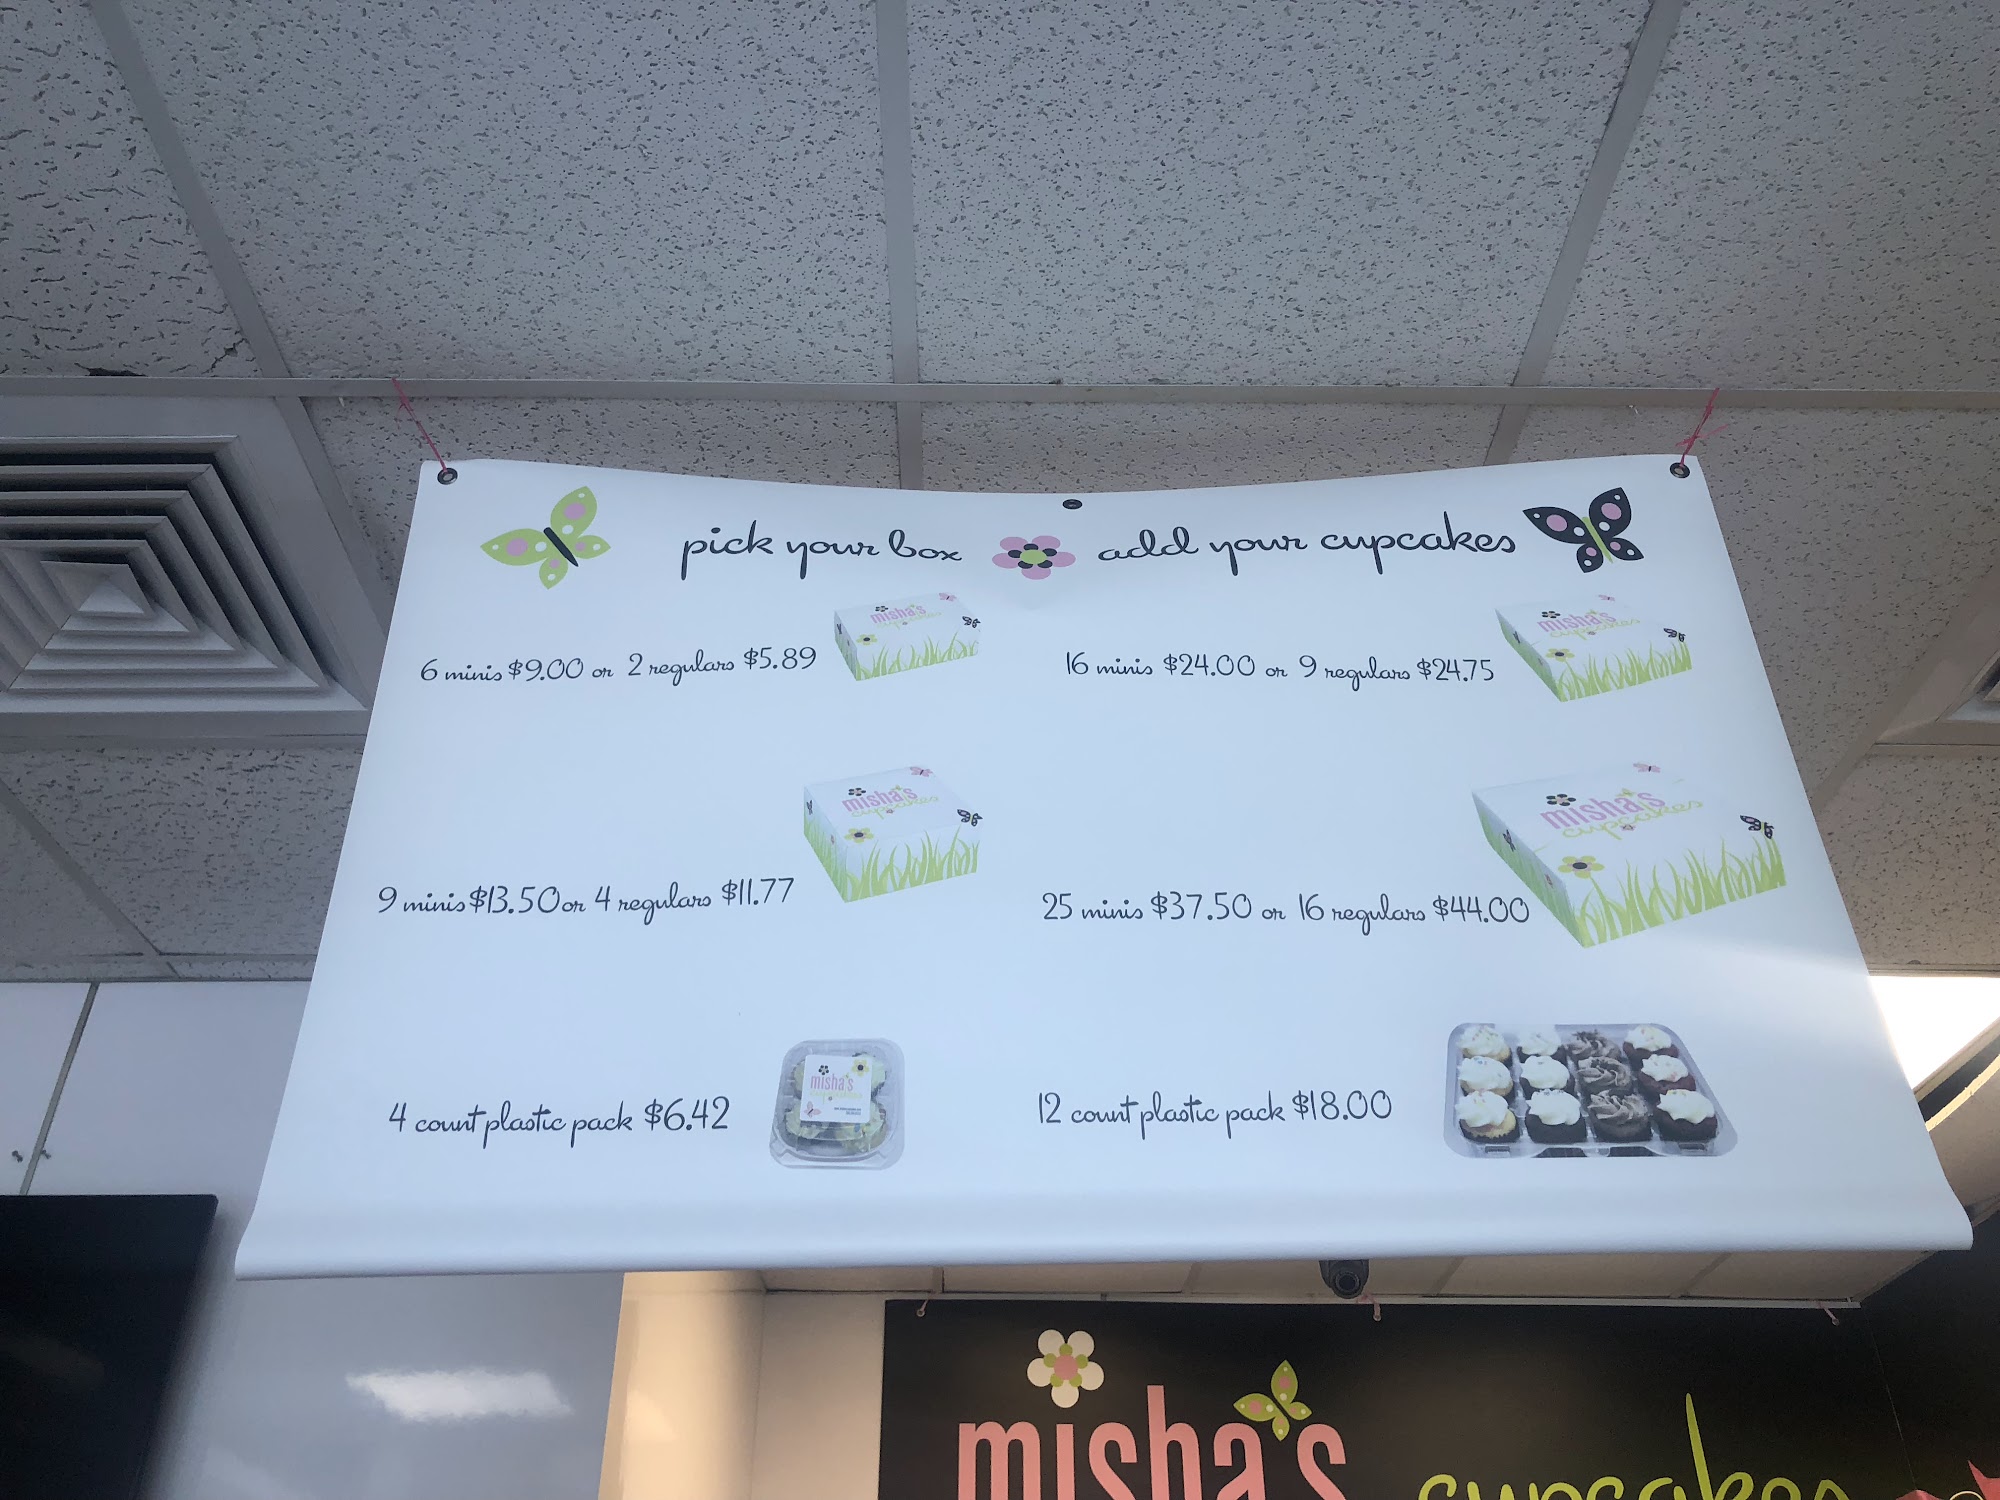 pick your box add your cupcakes
6 minis $9.00 or 2 regulars $5.89
misha's
cupcakes
16 minis $24.00 or 9 regulars $24.75
misha's
cupcakes
9 minis $13.50 or 4 regulars $11.77
misha's
cupcakes
25 minis $37.50 or 16 regulars $44.00
misha's
cupcakes
4 count plastic pack $6.42
misha's
12 count plastic pack $18.00
misha's cupcakes